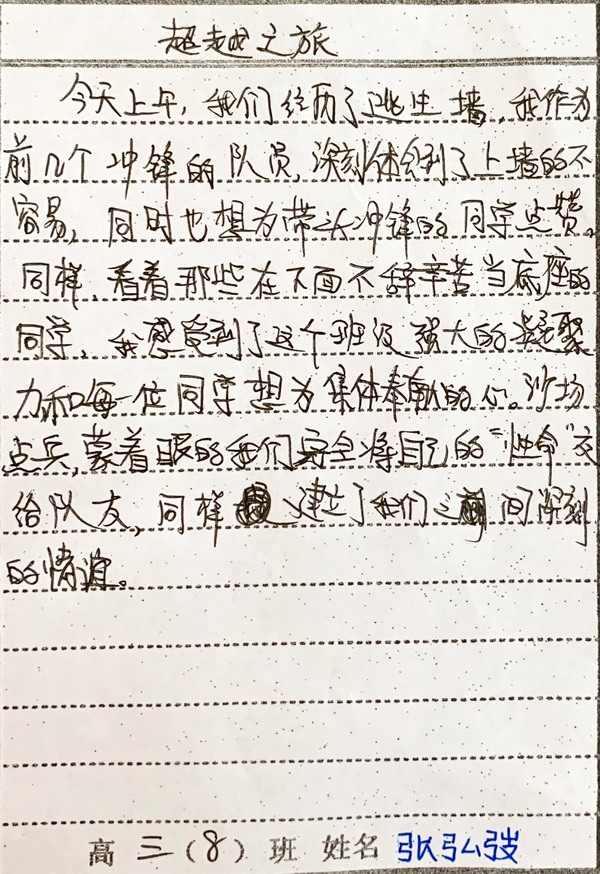 超越之旅
今天上午,我们经历了逃生墙,我作为
前几个冲锋的队员,深刻体会到了上墙的不
容易,同时也想为带头冲锋的同学点赞。
同样,看着那些在下面不辞辛苦当底座的
同学,我感受到了这个班级强大的凝聚
力和每一位同学想为集体奉献的心。沙场
点兵,蒙着眼的我们完全将自己的“性命”交
给队友,同样建立了我们之间深刻
的情谊。
高三(8)班 姓名 张弘弢